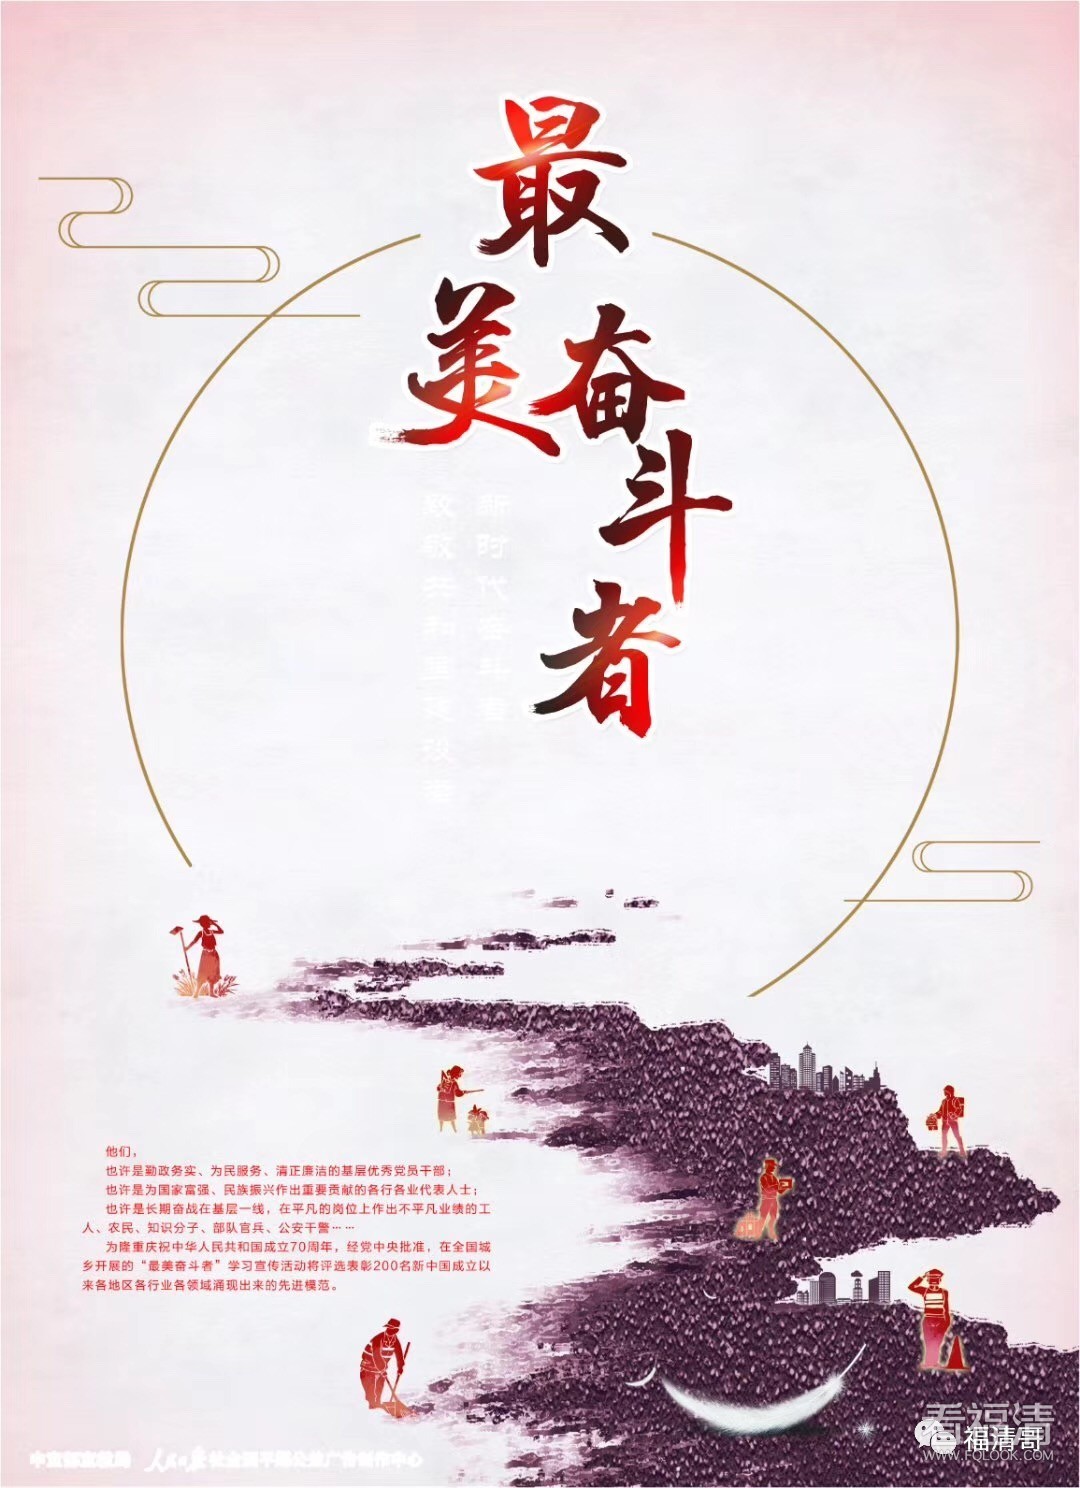 最
美
奋
斗
者
新时代奋斗者
致敬共和国建设者
他们，
也许是勤政务实、为民服务、清正廉洁的基层优秀党员干部；
也许是为国家富强、民族振兴作出重要贡献的各行各业代表人士；
也许是长期奋战在基层一线，在平凡的岗位上作出不平凡业绩的工
人、农民、知识分子、部队官兵、公安干警……
为隆重庆祝中华人民共和国成立70周年，经党中央批准，在全国城
乡开展的“最美奋斗者”学习宣传活动将评选表彰200名新中国成立以
来各地区各行业各领域涌现出来的先进模范。
中宣部宣教局
人民日报
广告制作中心
看福清
福清哥
WWW.FQLOOK.COM